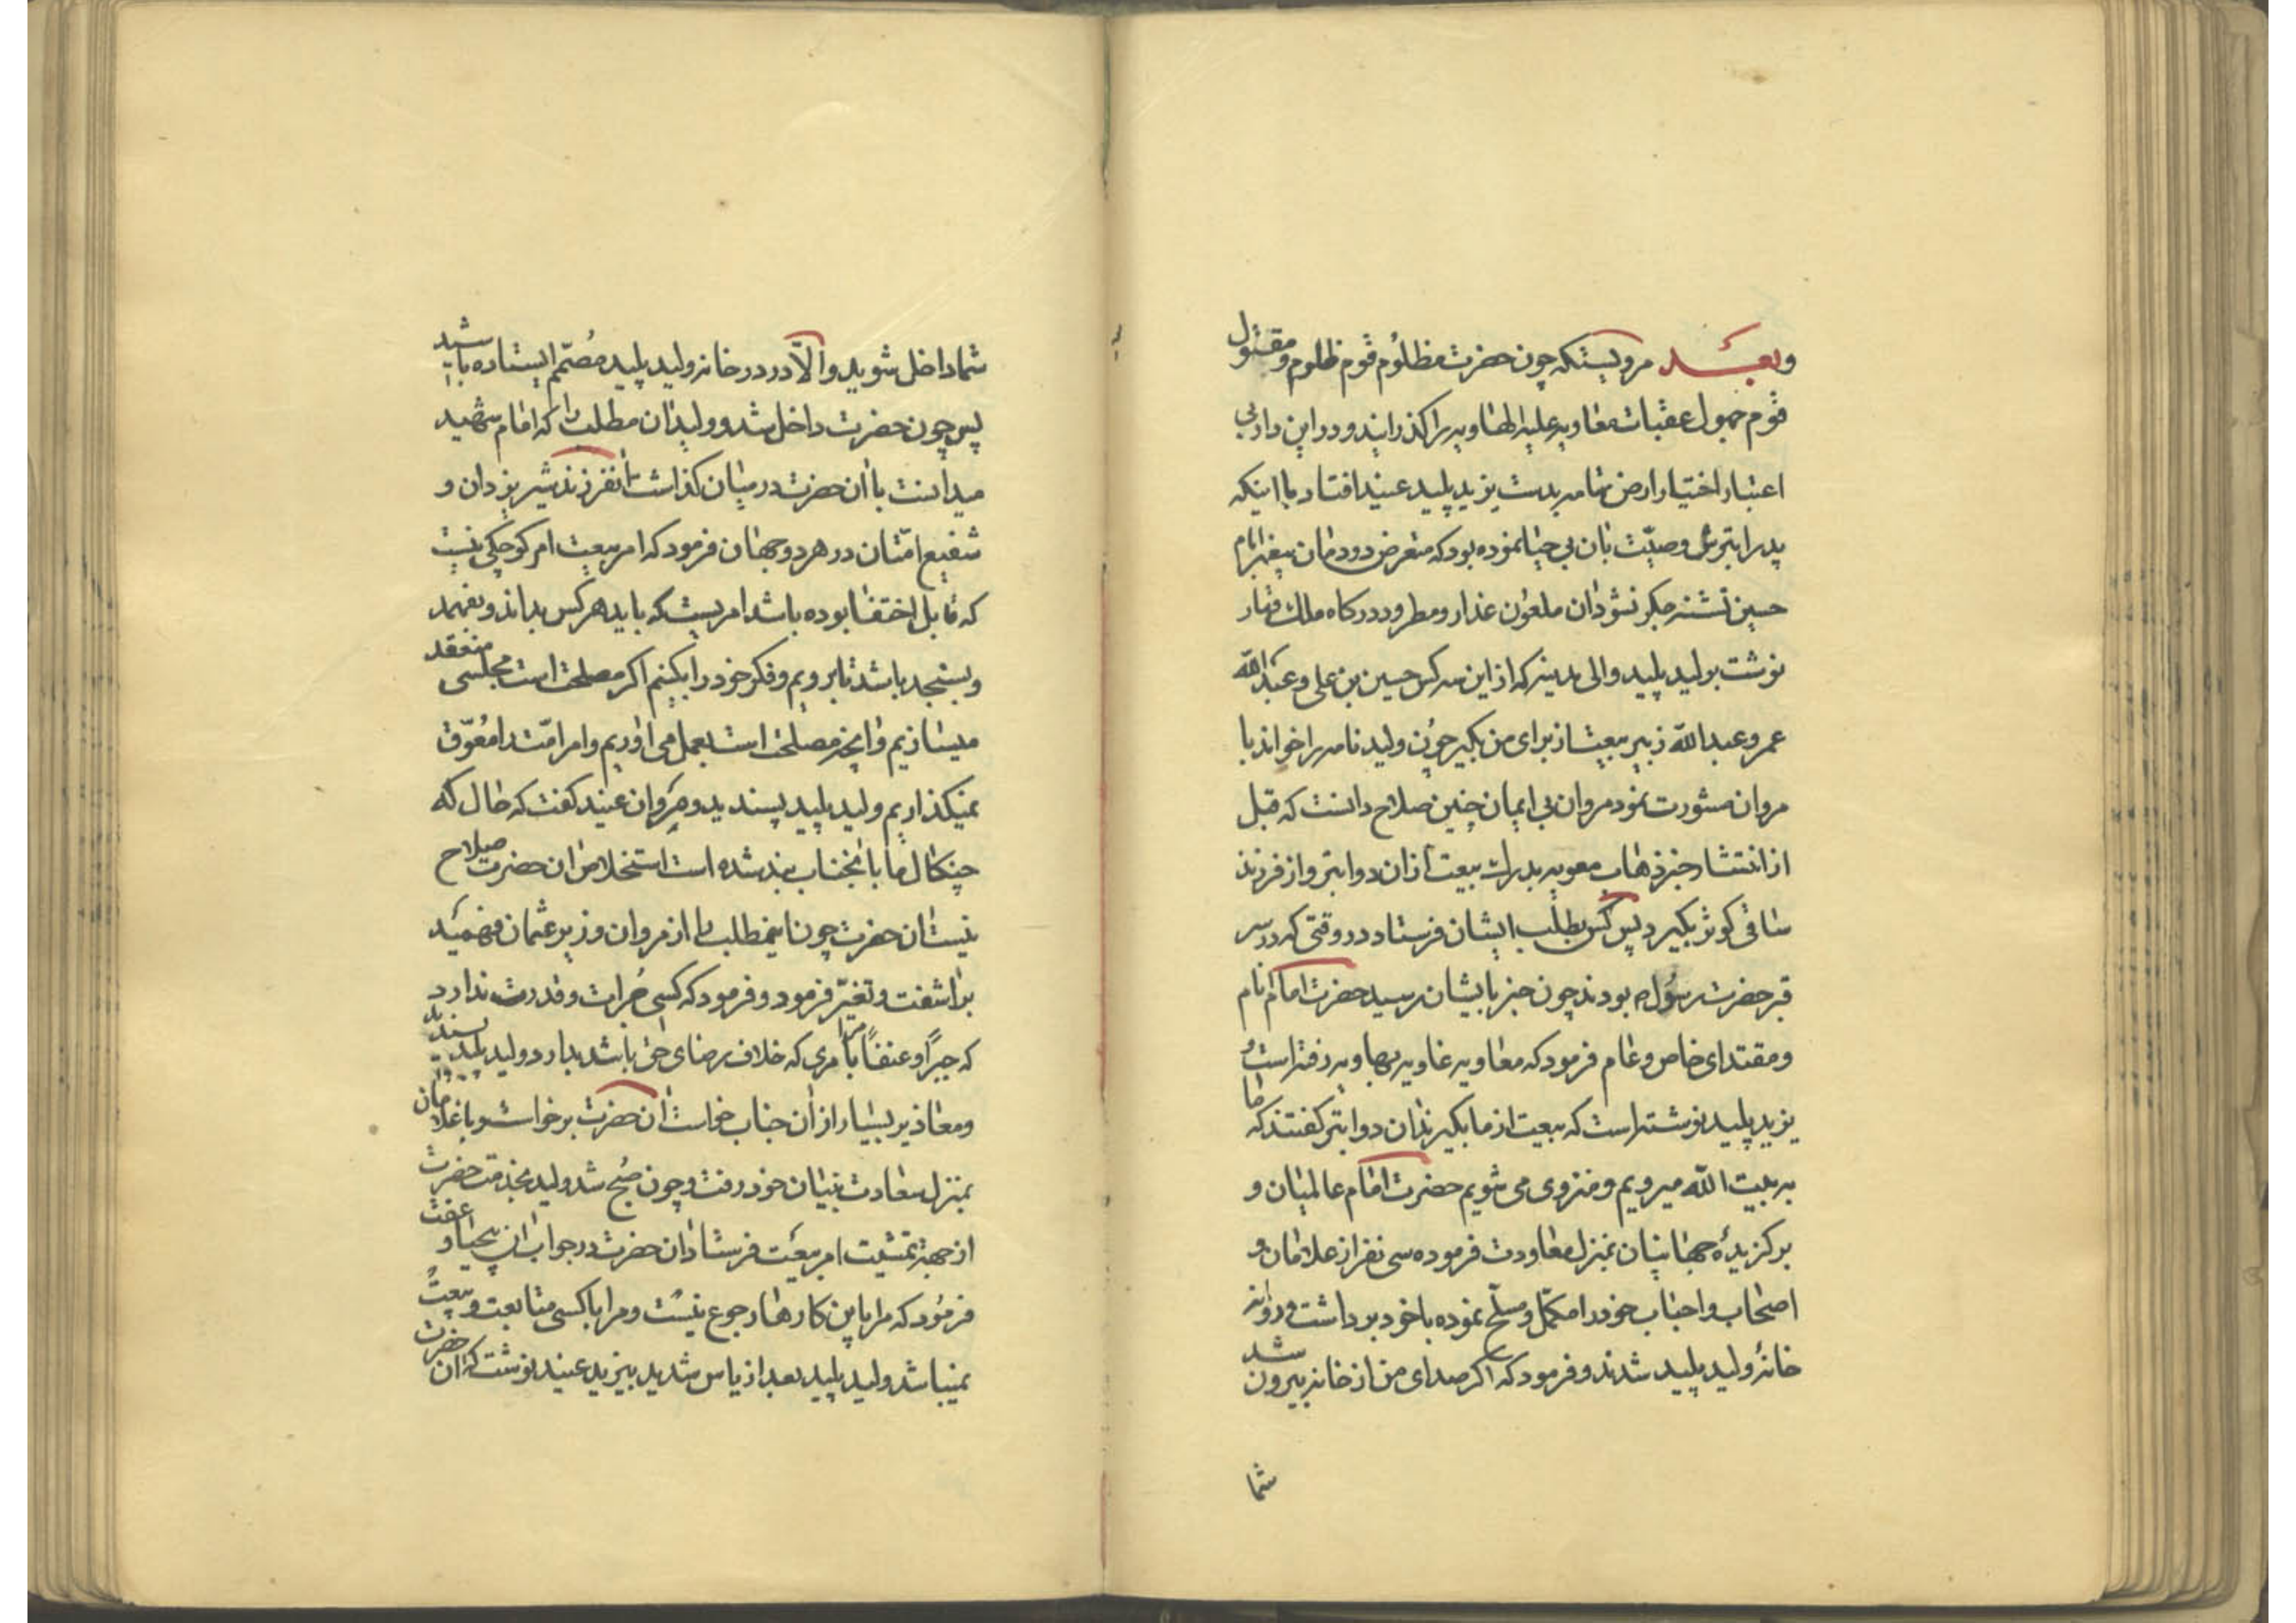 وبعد مرویستکه چون حضرت مظلوم قوم ظلوم و مقتول
قوم جهول عقبات معاویه علیه الهاویه را کذرانید و در این دار بی
اعتبار اختیار ارض تمامه بدست یزید پلید عنید افتاد با اینکه
پدر ابترش وصیّت بان بی حیا نموده بود که متعرض دودمان پیغمبر امام
حسین تشنه جکر نشود ان ملعون غدار و مطرود درکاه ملک قهار
نوشت بولید پلید والی مدینه که از این سه کس حسین بن علی و عبدالله
عمر و عبدالله زبیر بیعت از برای من بکیر چون ولید نامه را خواند با
مروان مشورت نمود مروان بی ایمان چنین صلاح دانست که قبل
از انتشار خبر ذهاب معویه بدرک بیعت از ان دو ابتر و از فرزند
ساقی کوثر بکیرد پس کس بطلب ایشان فرستاد در وقتی که در سر
قبر حضرت رسول ص بودند چون خبر بایشان رسید حضرت امام انام
و مقتدای خاص و عام فرمود که معاویه غاویه بهاویه رفته است و
یزید پلید نوشته است که بیعت از ما بکیرند ان دو ابتر کفتند که ما
به بیت الله میرویم و منزوی می شویم حضرت امام عالمیان و
برکزیدهٔ جهانیان بمنزل معاودت فرموده سی نفر از غلامان و
اصحاب و احباب خود را مکمّل و مسلّح نموده با خود برداشت و روانه
خانهٔ ولید پلید شدند و فرمود که اکر صدای من از خانه بیرون شد
شما
شما داخل شوید و الّا در در خانه ولید پلید مُصمّم ایستاده باشید
پس چون حضرت داخل شد و ولید ان مطلب را که امام شهید
میدانست با ان حضرت در میان کذاشت انفرزند شیر یزدان و
شفیع امّتان در هر دو جهان فرمود که امر بیعت امر کوچکی نیست
که قابل اختفا بوده باشد امریست که باید هر کس بداند و بفهمد
و بسنجد باشد تا برویم و فکر خود را بکنیم اکر مصلحت است مجلسی منعقد
میسازیم و انچه مصلحت است بعمل می اوریم و امر امّت را مُعوّق
نمیکذاریم ولید پلید پسندید و مروان عنید کفت که حال که
چنکال ما بانجناب بند شده است استخلاص ان حضرت صلاح
نیست ان حضرت چون اینمطلب را از مروان وزیر عثمان فهمید
براشفت و تغیّر فرمود و فرمود که کسی جُرات و قدرت ندارد
که جبرًا و عنفًا مرا بامری که خلاف رضای حق باشد بدارد ولید پلید پسندید
و معاذیر بسیار از ان جناب خواست ان حضرت برخواست و با غلامان
بمنزل سعادت بنیان خود رفت و چون صُبح شد ولید بخدمت حضرت
از جهة تمشیت امر بیعت فرستاد ان حضرت در جواب ان بیحیا و عفت
فرمود که مرا باین کارها رجوع نیست و مرا با کسی متابعت و بیعت
نمیباشد ولید پلید بعد از یاس شدید بیزید عنید نوشت که ان حضرت